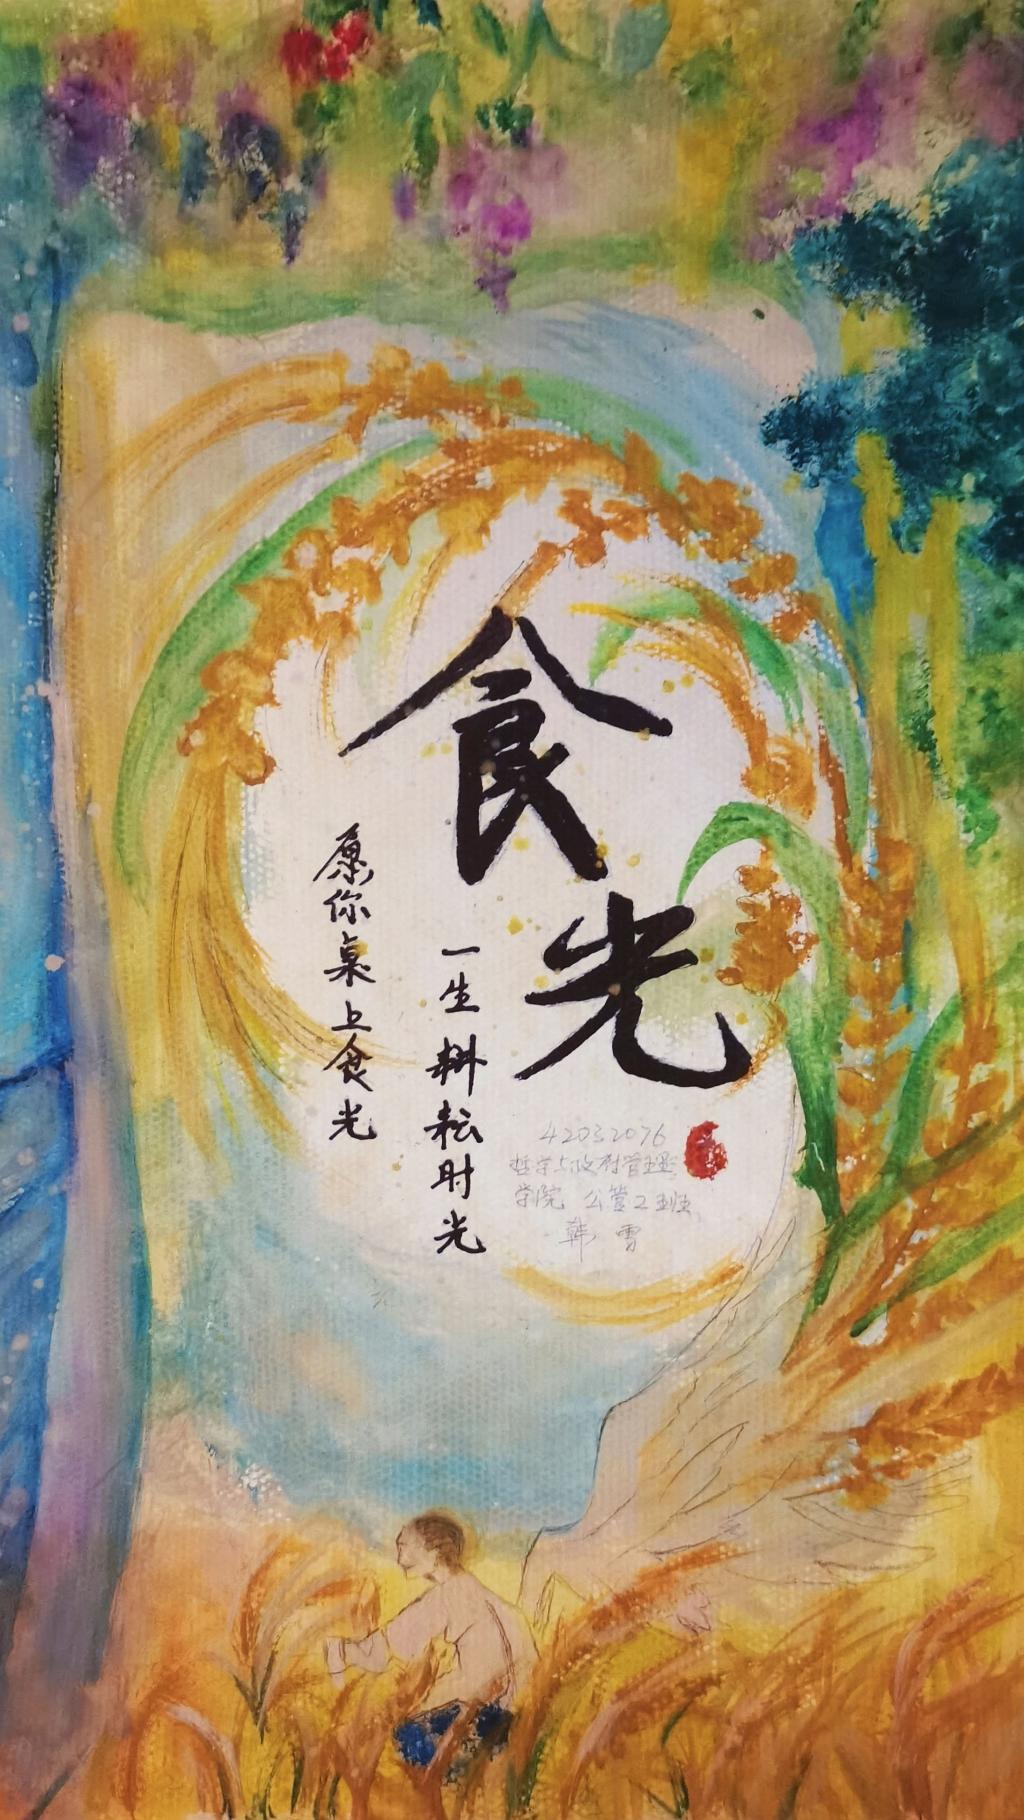 食光
一生耕耘时光
愿你桌上食光
42032076
哲学与政府管理
学院 公管2班
韩雪